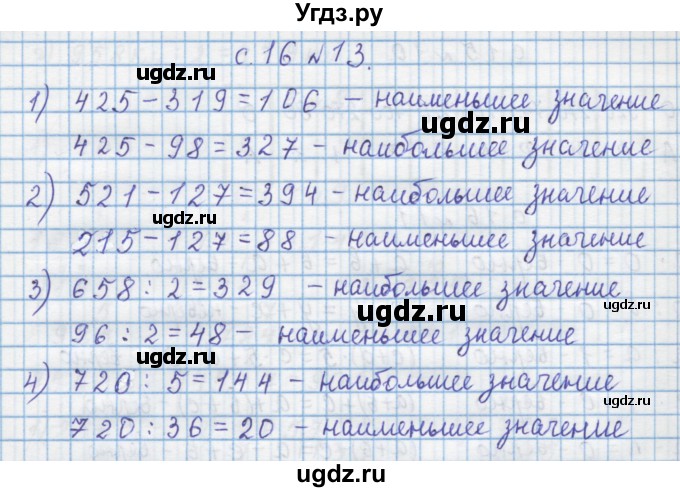 Угдз.ру
с.16 №13.
ugdz.ru
1) 425-319=106 - наименьшее значение
ugdz.ru
425-98=327 - наибольшее значение
2) 521-127=394 - наибольшее значение
ugdz.ru
ugdz.ru
215-127=88 - наименьшее значение
3) 658:2=329 - наибольшее значение
ugdz.ru
96:2=48 - наименьшее значение
ugdz.ru
4) 720:5=144 - наибольшее значение
720:36=20 - наименьшее значение
ugdz.ru